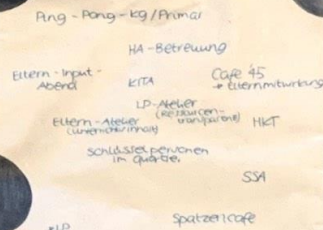 Ping-Pong-kg/Primar
HA-Betreuung
Eltern-Input-
Abend
KITA
Café '45
→ Elternmitwirkung
LP-Atelier
(Ressourcen-
transparenz)
Eltern-Atelier
(Unterrichtsinhalt)
HKT
Schlüsselpersonen
im Quartier
SSA
Spatzencafe
*LP